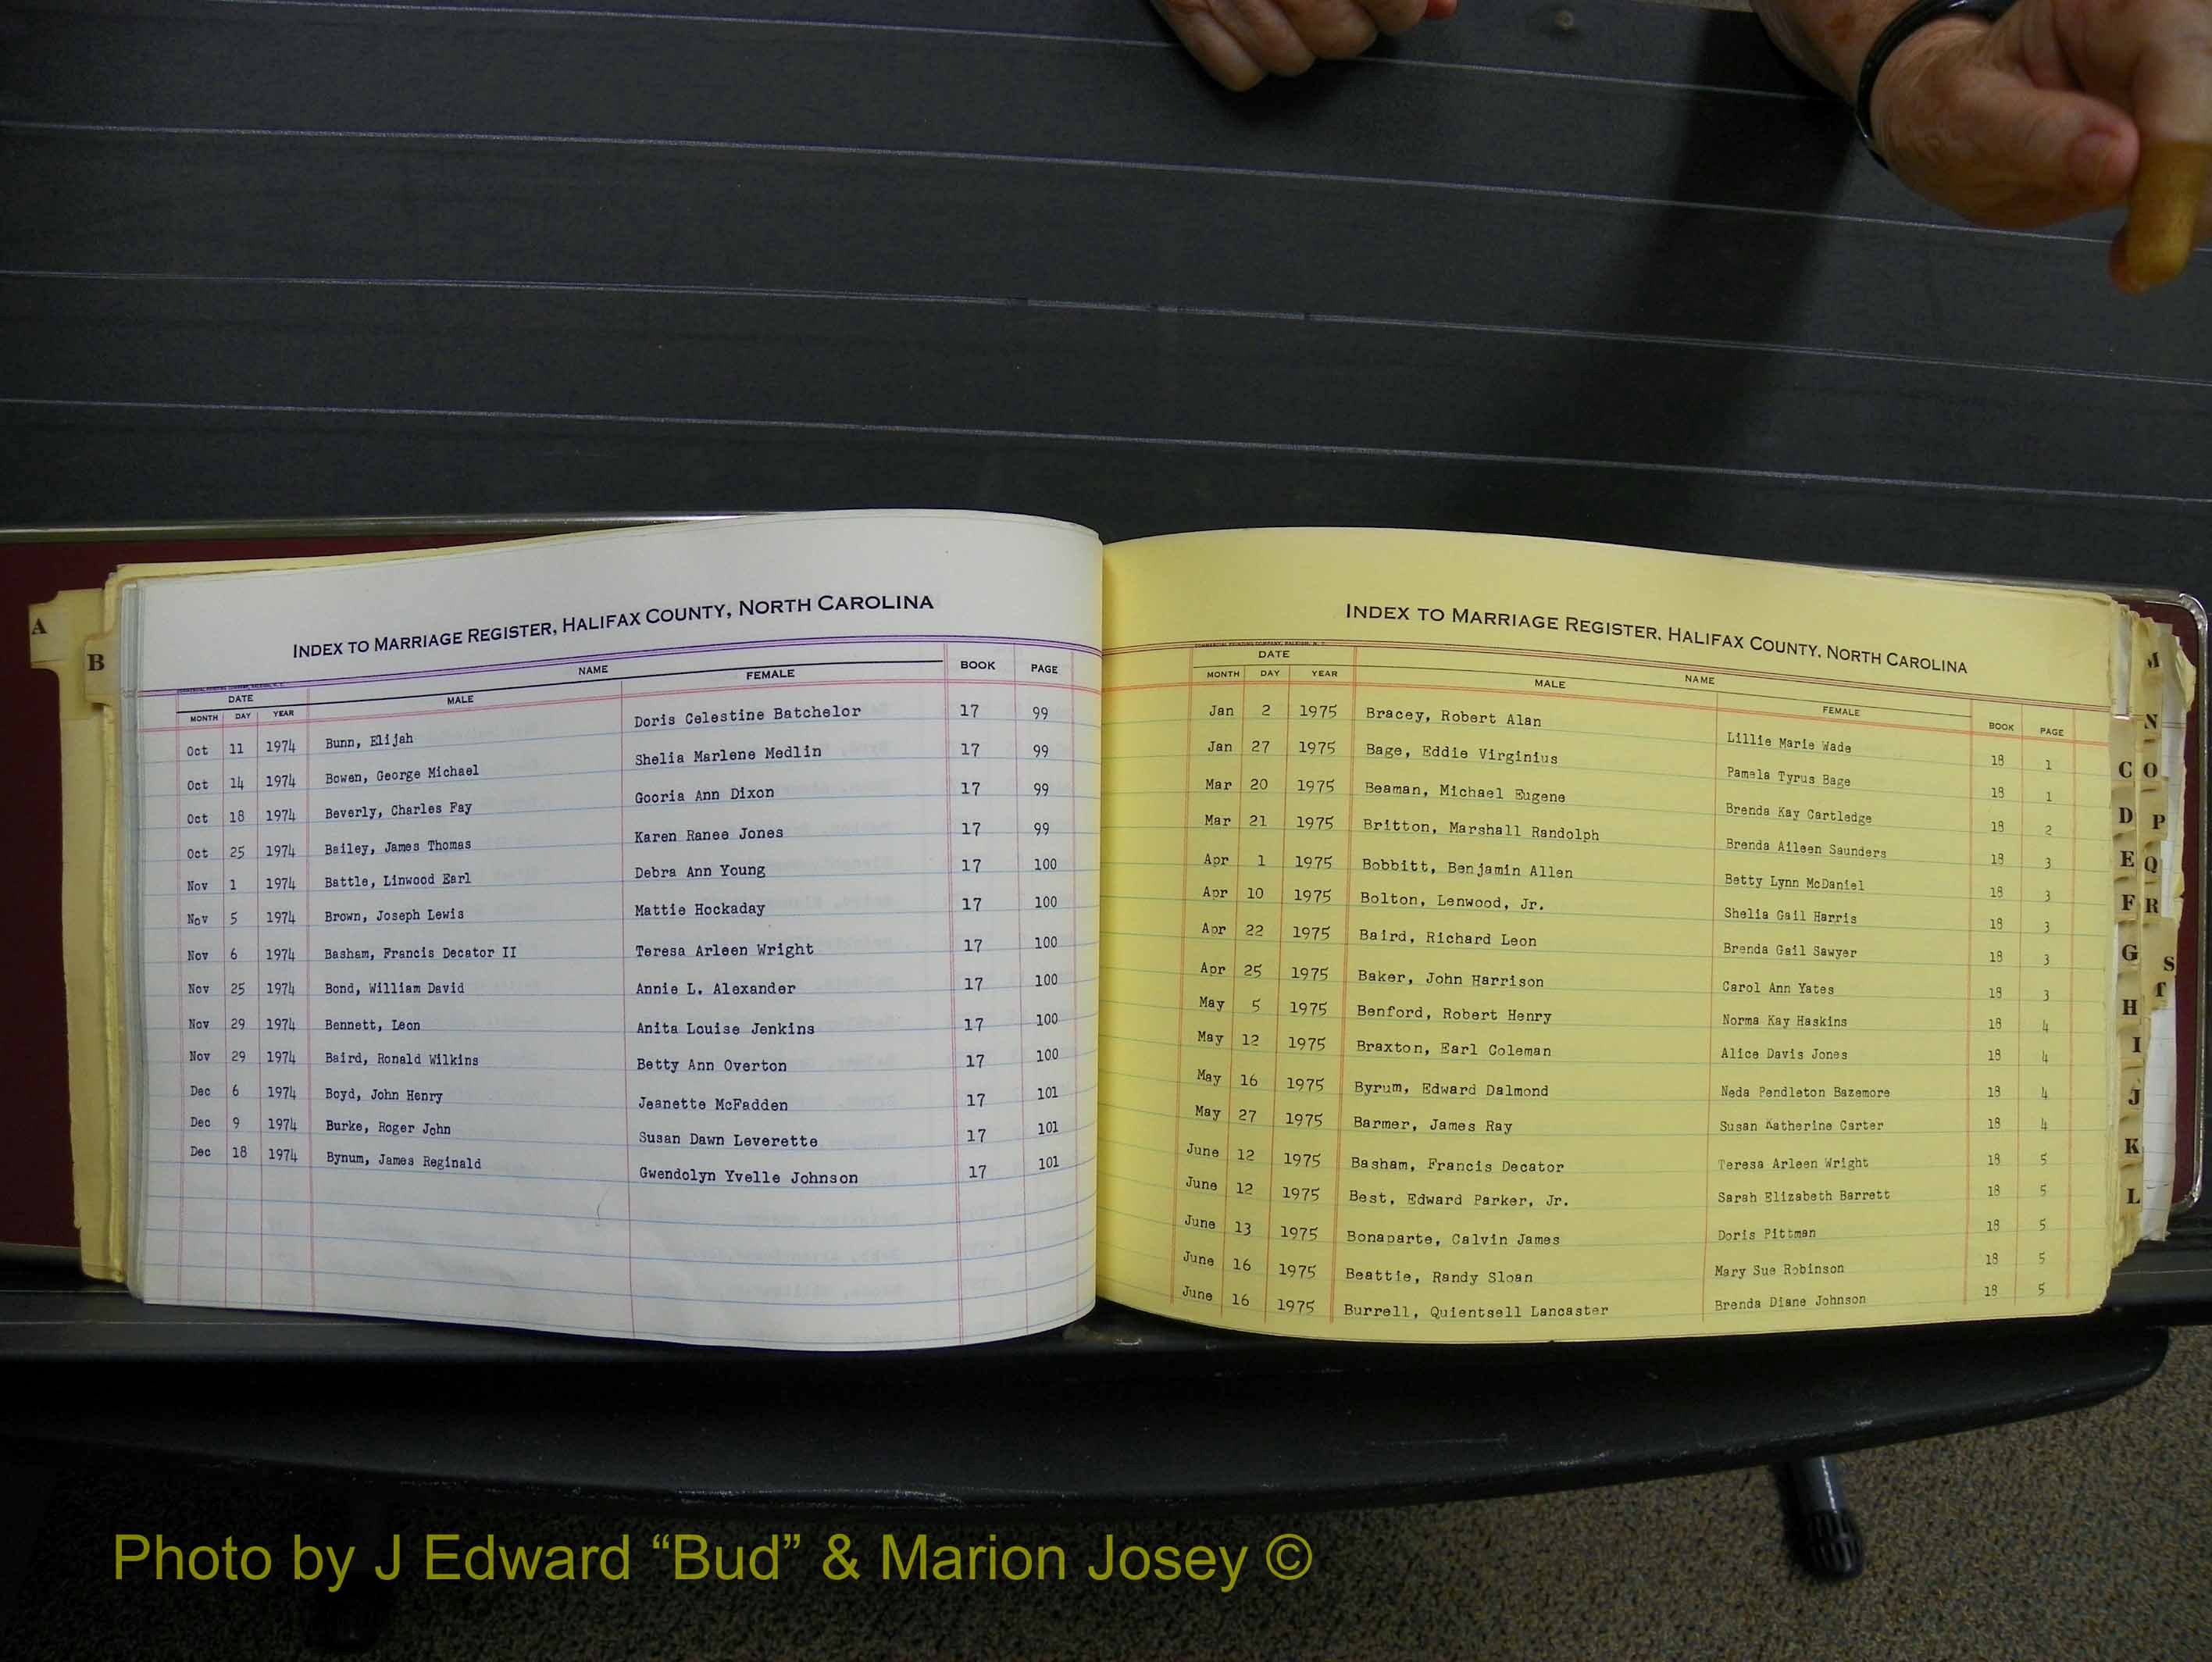 A
B
INDEX TO MARRIAGE REGISTER, HALIFAX COUNTY, NORTH CAROLINA
DATE NAME BOOK PAGE
MONTH DAY YEAR MALE FEMALE
Oct 11 1974 Bunn, Elijah Doris Celestine Batchelor 17 99
Oct 14 1974 Bowen, George Michael Shelia Marlene Medlin 17 99
Oct 18 1974 Beverly, Charles Fay Gooria Ann Dixon 17 99
Oct 25 1974 Bailey, James Thomas Karen Ranee Jones 17 99
Nov 1 1974 Battle, Linwood Earl Debra Ann Young 17 100
Nov 5 1974 Brown, Joseph Lewis Mattie Hockaday 17 100
Nov 6 1974 Basham, Francis Decator II Teresa Arleen Wright 17 100
Nov 25 1974 Bond, William David Annie L. Alexander 17 100
Nov 29 1974 Bennett, Leon Anita Louise Jenkins 17 100
Nov 29 1974 Baird, Ronald Wilkins Betty Ann Overton 17 100
Dec 6 1974 Boyd, John Henry Jeanette McFadden 17 101
Dec 9 1974 Burke, Roger John Susan Dawn Leverette 17 101
Dec 18 1974 Bynum, James Reginald Gwendolyn Yvelle Johnson 17 101
INDEX TO MARRIAGE REGISTER, HALIFAX COUNTY, NORTH CAROLINA
DATE NAME
MONTH DAY YEAR MALE FEMALE BOOK PAGE
Jan 2 1975 Bracey, Robert Alan Lillie Marie Wade 18 1
Jan 27 1975 Bage, Eddie Virginius Pamela Tyrus Bage 18 1
Mar 20 1975 Beaman, Michael Eugene Brenda Kay Cartledge 18 2
Mar 21 1975 Britton, Marshall Randolph Brenda Aileen Saunders 18 3
Apr 1 1975 Bobbitt, Benjamin Allen Betty Lynn McDaniel 18 3
Apr 10 1975 Bolton, Lenwood, Jr. Shelia Gail Harris 18 3
Apr 22 1975 Baird, Richard Leon Brenda Gail Sawyer 18 3
Apr 25 1975 Baker, John Harrison Carol Ann Yates 18 3
May 5 1975 Benford, Robert Henry Norma Kay Haskins 18 4
May 12 1975 Braxton, Earl Coleman Alice Davis Jones 18 4
May 16 1975 Byrum, Edward Dalmond Neda Pendleton Bazemore 18 4
May 27 1975 Barmer, James Ray Susan Katherine Carter 18 4
June 12 1975 Basham, Francis Decator Teresa Arleen Wright 18 5
June 12 1975 Best, Edward Parker, Jr. Sarah Elizabeth Barrett 18 5
June 13 1975 Bonaparte, Calvin James Doris Pittman 18 5
June 16 1975 Beattie, Randy Sloan Mary Sue Robinson 18 5
June 16 1975 Burrell, Quientsell Lancaster Brenda Diane Johnson 18 5
M
N
C O
D P
E Q
F R
G S
T
H
I
J
K
L
Photo by J Edward “Bud” & Marion Josey ©